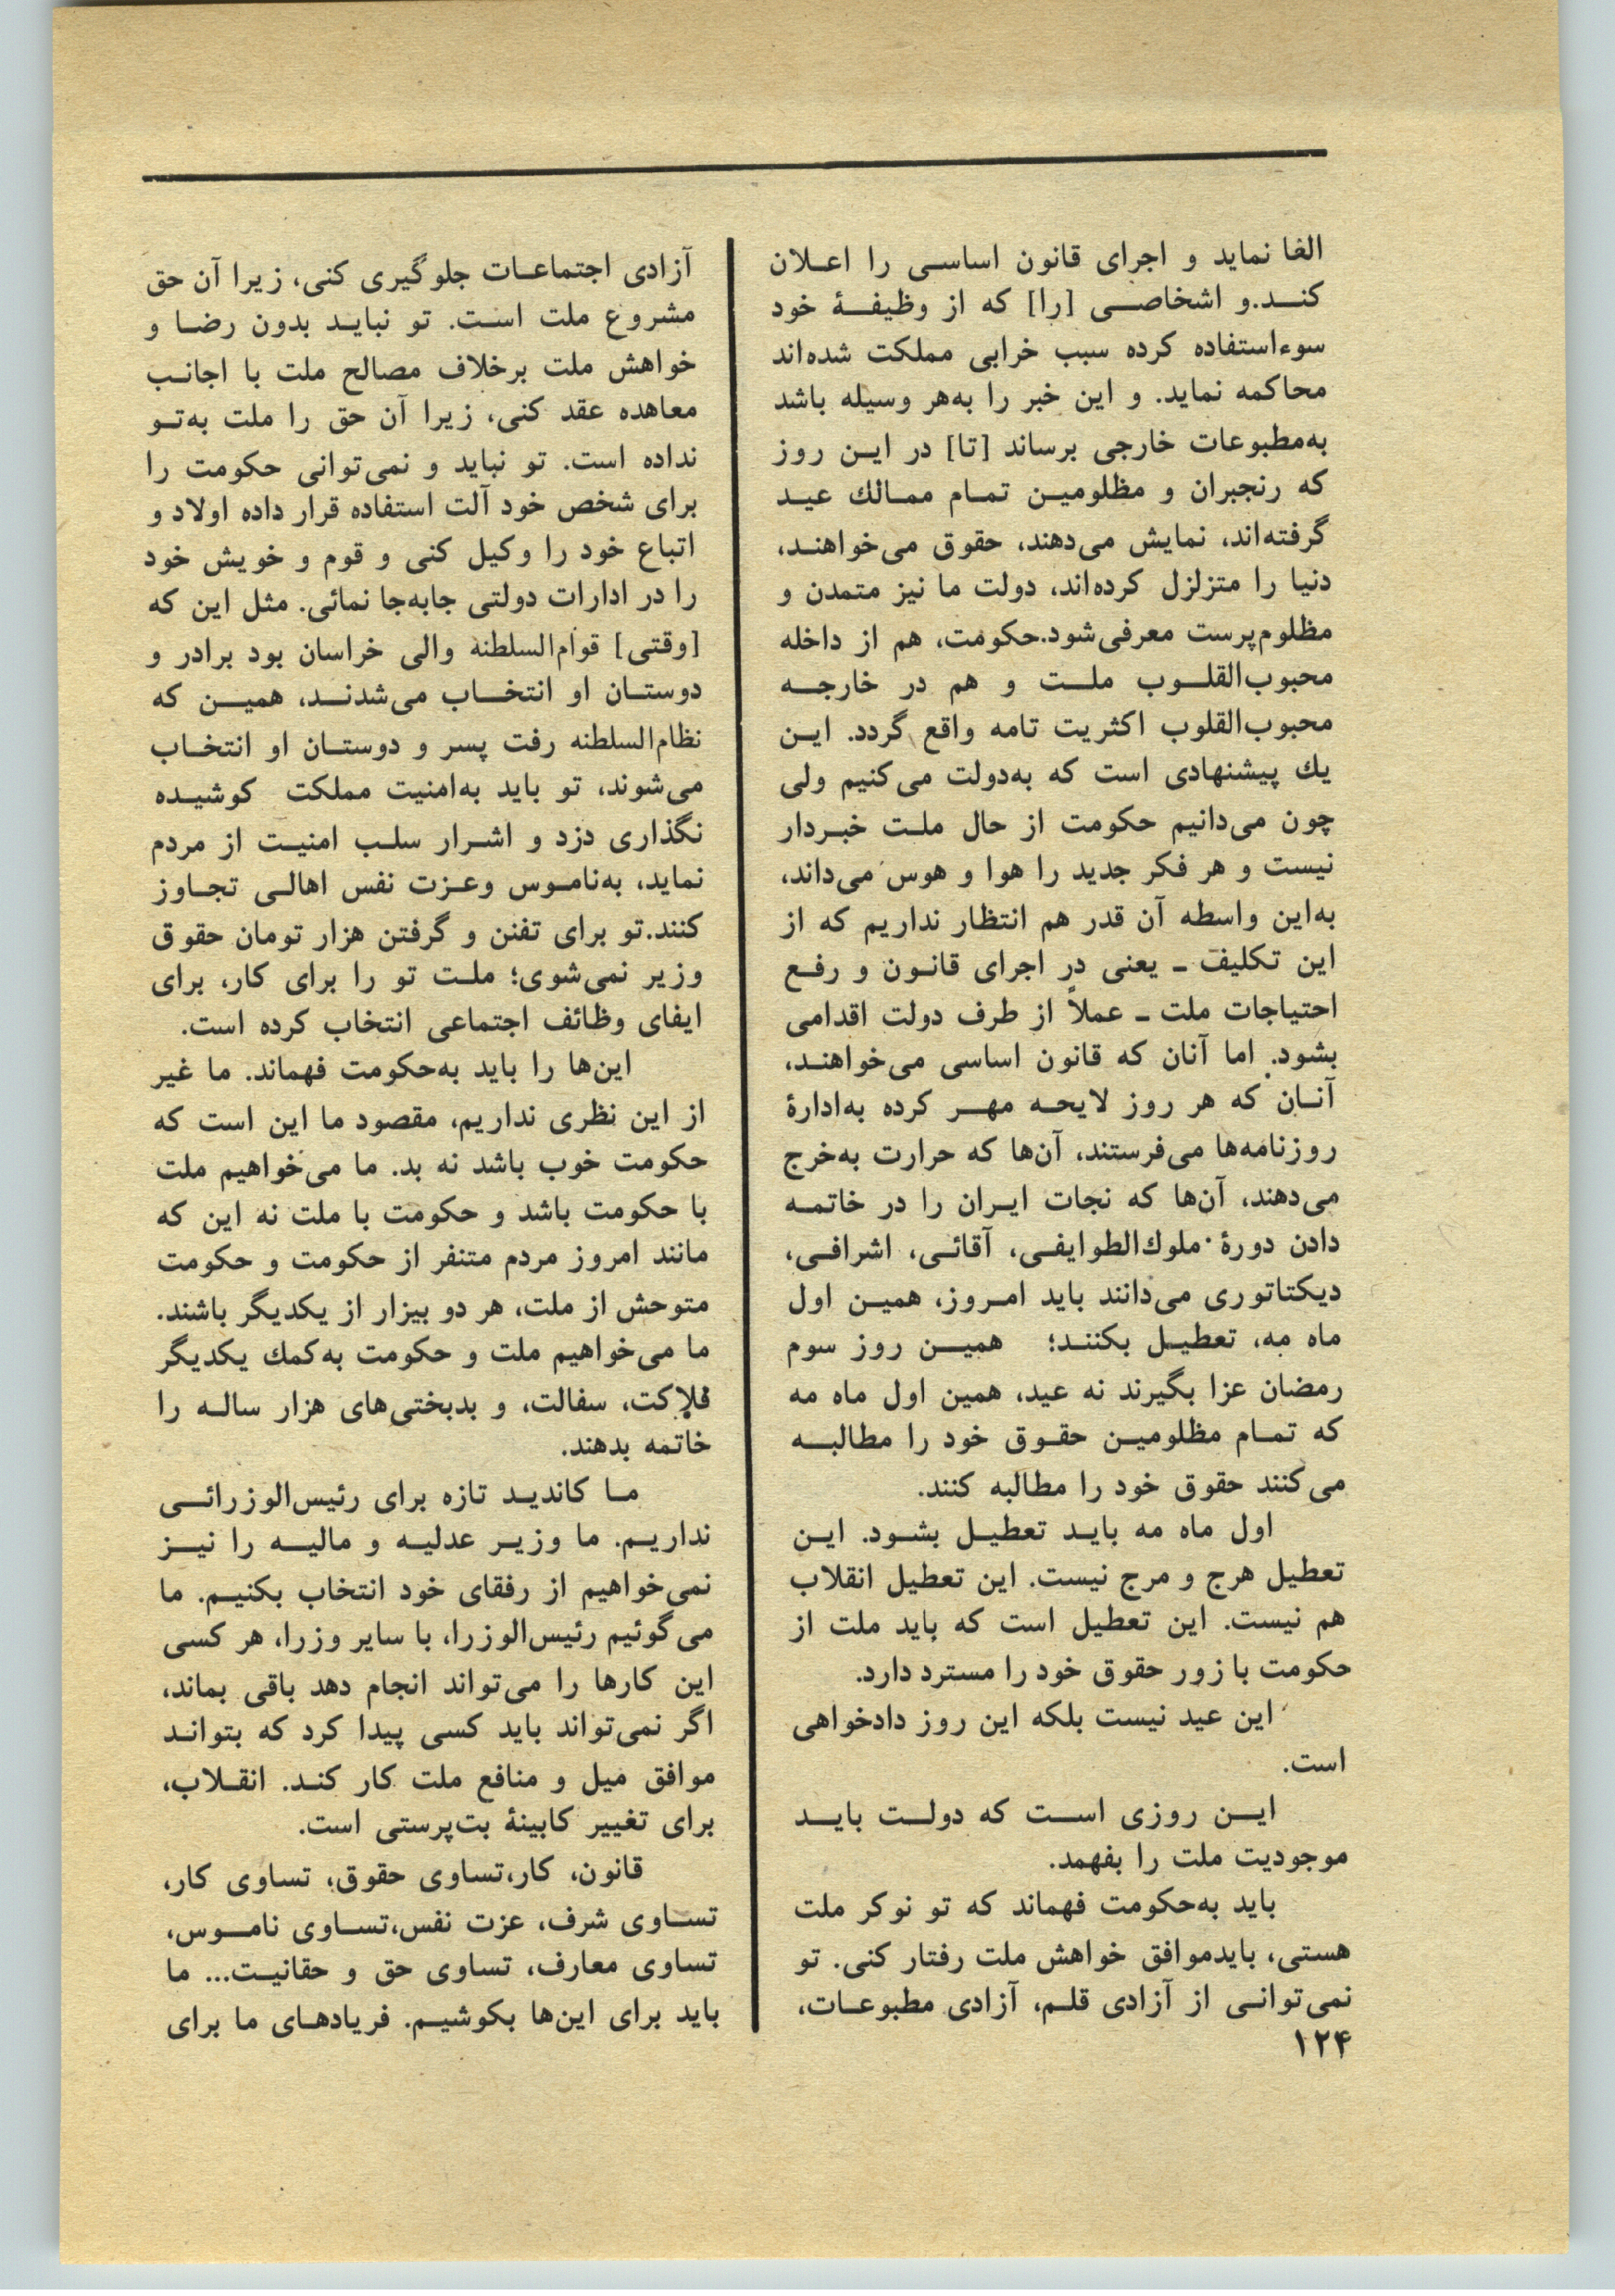 الغا نماید و اجرای قانون اساسی را اعلان
کند.و اشخاصی [را] که از وظیفهٔ خود
سوءاستفاده کرده سبب خرابی مملکت شده‌اند
محاکمه نماید. و این خبر را به‌هر وسیله باشد
به‌مطبوعات خارجی برساند [تا] در این روز
که رنجبران و مظلومین تمام ممالك عید
گرفته‌اند، نمایش می‌دهند، حقوق می‌خواهند،
دنیا را متزلزل کرده‌اند، دولت ما نیز متمدن و
مظلوم‌پرست معرفی‌شود.حکومت، هم از داخله
محبوب‌القلوب ملت و هم در خارجه
محبوب‌القلوب اکثریت تامه واقع گردد. این
یك پیشنهادی است که به‌دولت می‌کنیم ولی
چون می‌دانیم حکومت از حال ملت خبردار
نیست و هر فکر جدید را هوا و هوس می‌داند،
به‌این واسطه آن قدر هم انتظار نداریم که از
این تکلیف ـ یعنی در اجرای قانون و رفع
احتیاجات ملت ـ عملاً از طرف دولت اقدامی
بشود. اما آنان که قانون اساسی می‌خواهند،
آنان که هر روز لایحه مهر کرده به‌ادارهٔ
روزنامه‌ها می‌فرستند، آن‌ها که حرارت به‌خرج
می‌دهند، آن‌ها که نجات ایران را در خاتمه
دادن دورهٔ ملوك‌الطوایفی، آقائی، اشرافی،
دیکتاتوری می‌دانند باید امروز، همین اول
ماه مه، تعطیل بکنند؛ همین روز سوم
رمضان عزا بگیرند نه عید، همین اول ماه مه
که تمام مظلومین حقوق خود را مطالبه
می‌کنند حقوق خود را مطالبه کنند.
اول ماه مه باید تعطیل بشود. این
تعطیل هرج و مرج نیست. این تعطیل انقلاب
هم نیست. این تعطیل است که باید ملت از
حکومت با زور حقوق خود را مسترد دارد.
این عید نیست بلکه این روز دادخواهی
است.
این روزی است که دولت باید
موجودیت ملت را بفهمد.
باید به‌حکومت فهماند که تو نوکر ملت
هستی، بایدموافق خواهش ملت رفتار کنی. تو
نمی‌توانی از آزادی قلم، آزادی مطبوعات،
۱۲۴
آزادی اجتماعات جلوگیری کنی، زیرا آن حق
مشروع ملت است. تو نباید بدون رضا و
خواهش ملت برخلاف مصالح ملت با اجانب
معاهده عقد کنی، زیرا آن حق را ملت به‌تو
نداده است. تو نباید و نمی‌توانی حکومت را
برای شخص خود آلت استفاده قرار داده اولاد و
اتباع خود را وکیل کنی و قوم و خویش خود
را در ادارات دولتی جابه‌جا نمائی. مثل این که
[وقتی] قوام‌السلطنه والی خراسان بود برادر و
دوستان او انتخاب می‌شدند، همین که
نظام‌السلطنه رفت پسر و دوستان او انتخاب
می‌شوند، تو باید به‌امنیت مملکت کوشیده
نگذاری دزد و اشرار سلب امنیت از مردم
نماید، به‌ناموس وعزت نفس اهالی تجاوز
کنند.تو برای تفنن و گرفتن هزار تومان حقوق
وزیر نمی‌شوی؛ ملت تو را برای کار، برای
ایفای وظائف اجتماعی انتخاب کرده است.
این‌ها را باید به‌حکومت فهماند. ما غیر
از این نظری نداریم، مقصود ما این است که
حکومت خوب باشد نه بد. ما می‌خواهیم ملت
با حکومت باشد و حکومت با ملت نه این که
مانند امروز مردم متنفر از حکومت و حکومت
متوحش از ملت، هر دو بیزار از یکدیگر باشند.
ما می‌خواهیم ملت و حکومت به‌کمك یکدیگر
فلاکت، سفالت، و بدبختی‌های هزار ساله را
خاتمه بدهند.
ما کاندید تازه برای رئیس‌الوزرائی
نداریم. ما وزیر عدلیه و مالیه را نیز
نمی‌خواهیم از رفقای خود انتخاب بکنیم. ما
می‌گوئیم رئیس‌الوزرا، با سایر وزرا، هر کسی
این کارها را می‌تواند انجام دهد باقی بماند،
اگر نمی‌تواند باید کسی پیدا کرد که بتواند
موافق میل و منافع ملت کار کند. انقلاب،
برای تغییر کابینهٔ بت‌پرستی است.
قانون، کار،تساوی حقوق، تساوی کار،
تساوی شرف، عزت نفس،تساوی ناموس،
تساوی معارف، تساوی حق و حقانیت... ما
باید برای این‌ها بکوشیم. فریادهای ما برای